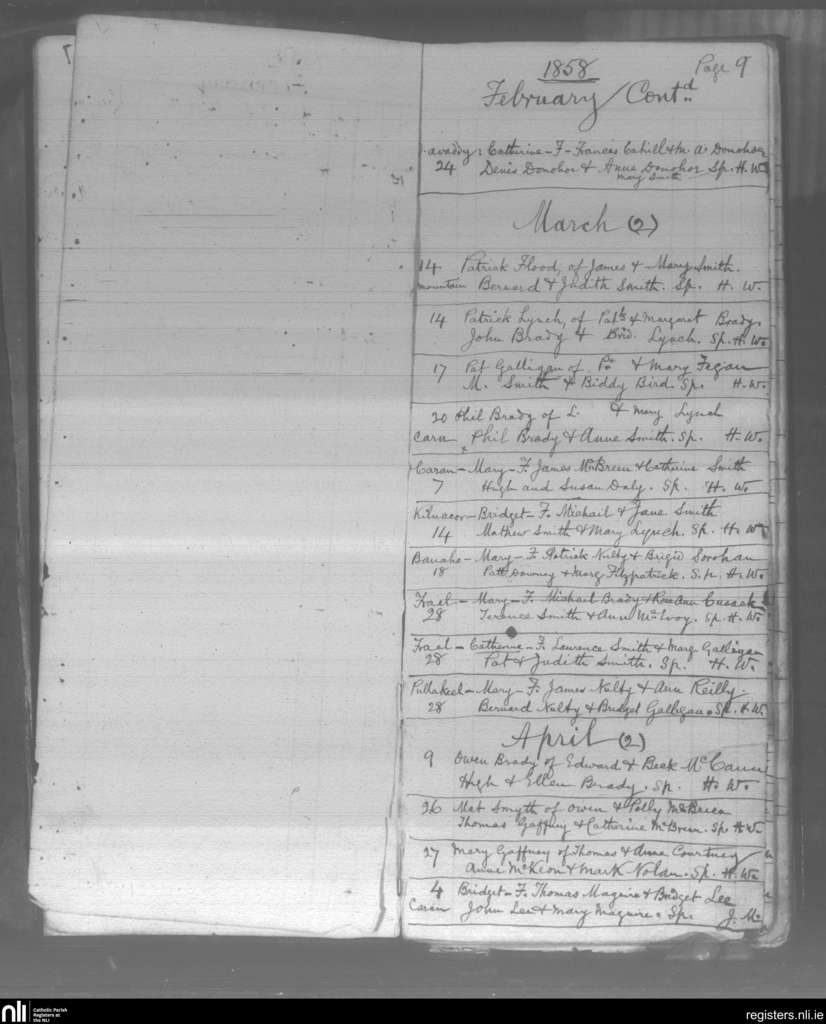 7
1858
Page 9
February Contd
avaddy: Catherine - F - Francis Cahill & M. A. Donohoe
24 Denis Donohoe & Anne Donohoe Sp. H. W.
Mary Smith
March (2)
14 Patrick Flood, of James & Mary Smith.
mountain Bernard & Judith Smith. Sp. H. W.
14 Patrick Lynch, of Patk & Margaret Brady.
John Brady & Brid. Lynch. Sp. H. W.
17 Pat Galligan of Pa & Mary Fegan
M. Smith & Biddy Bird. Sp. H. W.
20 Phil Brady of L. & Mary Lynch
Carn x Phil Brady & Anne Smith. Sp. H. W.
Caran - Mary - F. James McBreen & Catherine Smith
7 Hugh and Susan Daly. Sp. H. W.
Kilnacor - Bridget - F. Michail & Jane Smith
14 Mathew Smith & Mary Lynch. Sp. H. W.
Banaho - Mary - F. Patrick Nulty & Brigid Sorohan
18 Patt Downey & Marg Fitzpatrick. S.p. H. W.
Frael - Mary - F. Michael Brady & Rose Ann Cusack
28 Terence Smith & Ann McEvoy. Sp. H. W.
Frael - Catherine - F. Laurence Smith & Marg Galligan
28 Pat & Judith Smith. Sp. H. W.
Pullakeel - Mary - F. James Nulty & Ann Reilly.
28 Bernard Nulty & Bridget Galligan. Sp. H. W.
April (2)
9 Owen Brady of Edward & Beck McCann
Hugh & Ellen Brady. Sp. H. W.
26 Mat Smyth of Owen & Polly McBrien
Thomas Gaffney & Catherine McBreen. Sp. H. W.
27 Mary Gaffney of Thomas & Anne Courtney
Anne McKeon & Mark Nolan. Sp. H. W.
4 Bridget - F. Thomas Maguire & Bridget Lee
Caran John Lee & Mary Maguire. Sp. J. M.
nli Catholic Parish
Registers at
the NLI
registers.nli.ie